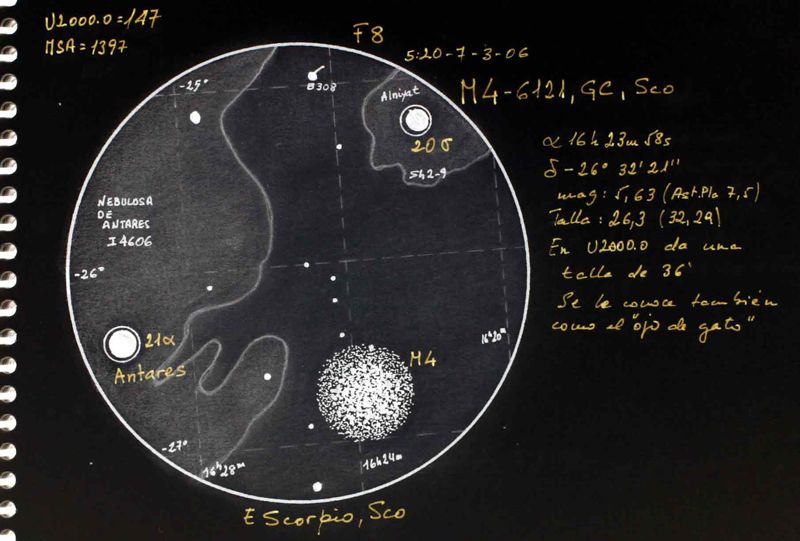 U2000.0=147
MSA=1397
F8
5:20-7-3-06
M4-6121, GC, Sco
α 16h 23m 58s
δ-26° 32' 21"
mag: 5,63 (Ast.Pla 7,5)
Talla: 26,3 (32,29)
En U2000.0 da una
talla de 36'
Se le conoce también
como el "ojo de gato"
-25°
B308
Alnixat
20σ
Sh2-9
NEBULOSA
DE
ANTARES
I4606
-26°
21α
Antares
M4
16h20m
-27°
16h28m
16h24m
E Scorpio, Sco